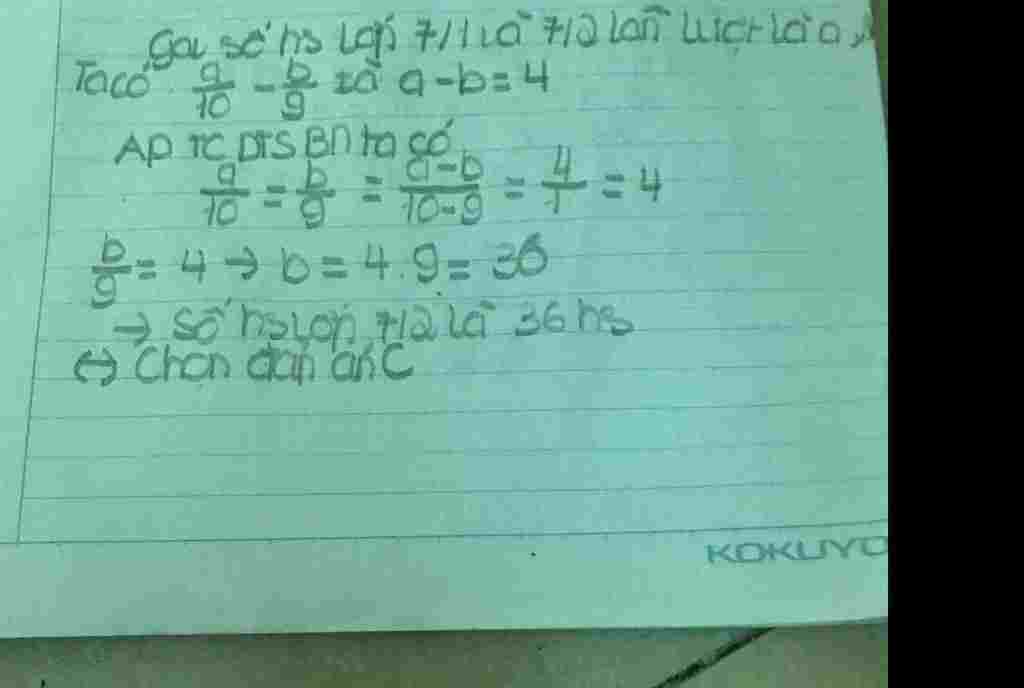 Gọi số hs lớp 7/1 và 7/2 lần lượt là a,
Ta có a/10 = b/9 và a - b = 4
AD TC DTSBN ta có
a/10 = b/9 = a-b/10-9 = 4/1 = 4
b/9 = 4 → b = 4.9 = 36
→ Số hs lớp 7/2 là 36 hs
↔ Chọn đáp án C
KOKUYO